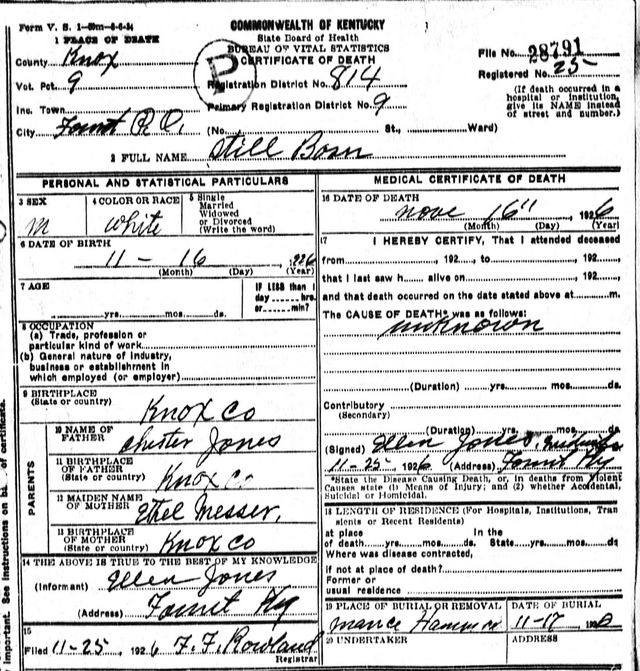 Form V. S. 1-50m-6-6-24
COMMONWEALTH OF KENTUCKY
State Board of Health
BUREAU OF VITAL STATISTICS
CERTIFICATE OF DEATH
1 PLACE OF DEATH
County Knox
Vot. Pct. 9
Inc. Town
City Fount P.O.
P
Registration District No. 814
Primary Registration District No. 9
(No. St., Ward)
File No. 28791
Registered No. 25-
(If death occurred in a
hospital or institution,
give its NAME instead
of street and number.)
2 FULL NAME Still Born
PERSONAL AND STATISTICAL PARTICULARS
3 SEX
M
4 COLOR OR RACE
White
5 Single
Married
Widowed
or Divorced
(Write the word)
6 DATE OF BIRTH
11 - 16 1926
(Month) (Day) (Year)
7 AGE
yrs. mos. ds.
IF LESS than 1
day hrs.
or min?
8 OCCUPATION
(a) Trade, profession or
particular kind of work
(b) General nature of industry,
business or establishment in
which employed (or employer)
9 BIRTHPLACE
(State or country) Knox Co
PARENTS
10 NAME OF
FATHER Chester Jones
11 BIRTHPLACE
OF FATHER
(State or country) Knox Co
12 MAIDEN NAME
OF MOTHER Ethel Messer,
13 BIRTHPLACE
OF MOTHER
(State or country) Knox Co
14 THE ABOVE IS TRUE TO THE BEST OF MY KNOWLEDGE
(Informant) Ellen Jones
(Address) Fount Ky
15
Filed 11-25, 1926 F. F. Rowland
Registrar
MEDICAL CERTIFICATE OF DEATH
16 DATE OF DEATH
Nove 16", 1926
(Month) (Day) (Year)
17 I HEREBY CERTIFY, That I attended deceased
from , 192 , to , 192 ,
that I last saw h alive on , 192 ,
and that death occurred on the date stated above at m.
The CAUSE OF DEATH* was as follows:
unknown
(Duration) yrs. mos. ds.
Contributory
(Secondary)
(Duration) yrs. mos. ds.
(Signed) Ellen Jones, Midwife
11-25 1926 (Address) Fount Ky
*State the Disease Causing Death, or, in deaths from Violent
Causes state (1) Means of Injury; and (2) whether Accidental,
Suicidal or Homicidal.
18 LENGTH OF RESIDENCE (For Hospitals, Institutions, Tran
sients or Recent Residents)
at place In the
of death yrs. mos. ds. State yrs. mos. ds.
Where was disease contracted,
if not at place of death?
Former or
usual residence
19 PLACE OF BURIAL OR REMOVAL
DATE OF BURIAL
11-17 192
20 UNDERTAKER
ADDRESS
important. See instructions on of certificate.